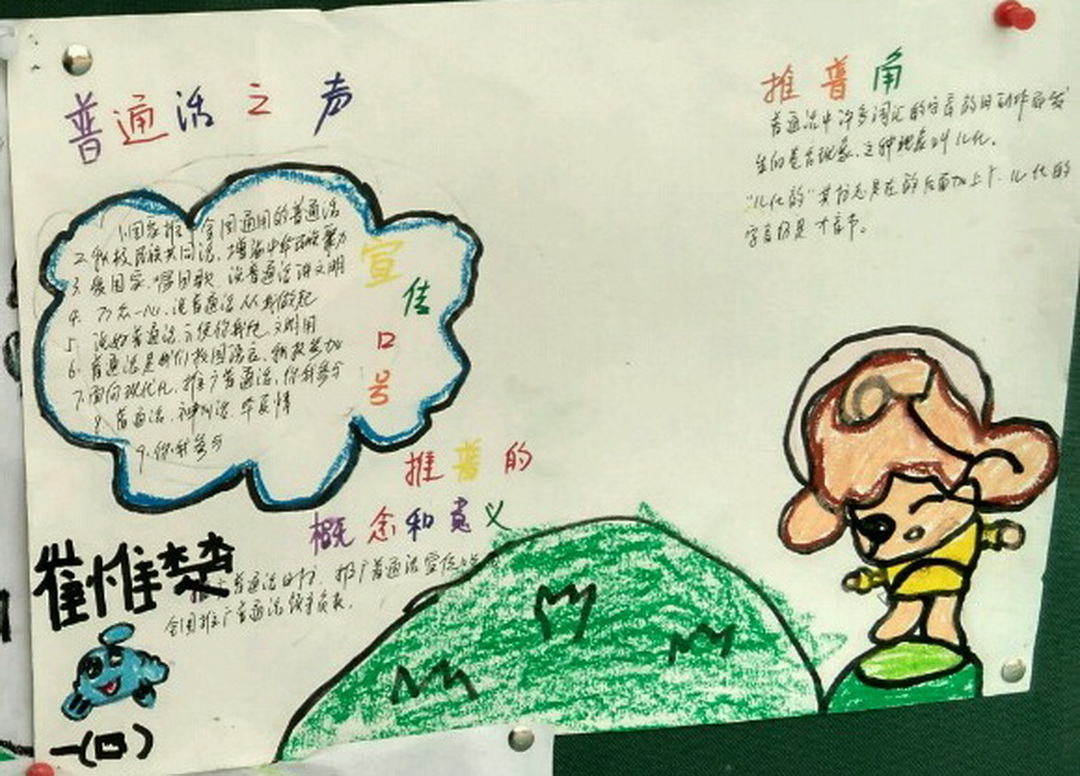 普通话之声
推普角
普通话中许多词汇的字音的因动作而发
生的变音现象,这种现象叫儿化。
"儿化的"其标志是在的后面加上r.儿化的
字音仍是才音节。
宣
传
口
号
1.国家推 全国通用的普通话
2.积极民族共同语,增强中华民族聚力
3.爱国家.唱国歌 说普通话讲文明
4.万众一心,说普通话从我做起
5.说好普通话.方便你我他
6.普通话是我们校园语言,积极参加
7.面向现代化,推广普通话,你我参与
8.普通话.神州话.华夏情
9.你我参与
推普的
概念和意义
普通话 推广普通话宣传
全国推广普通话
崔惟楚
一(四)